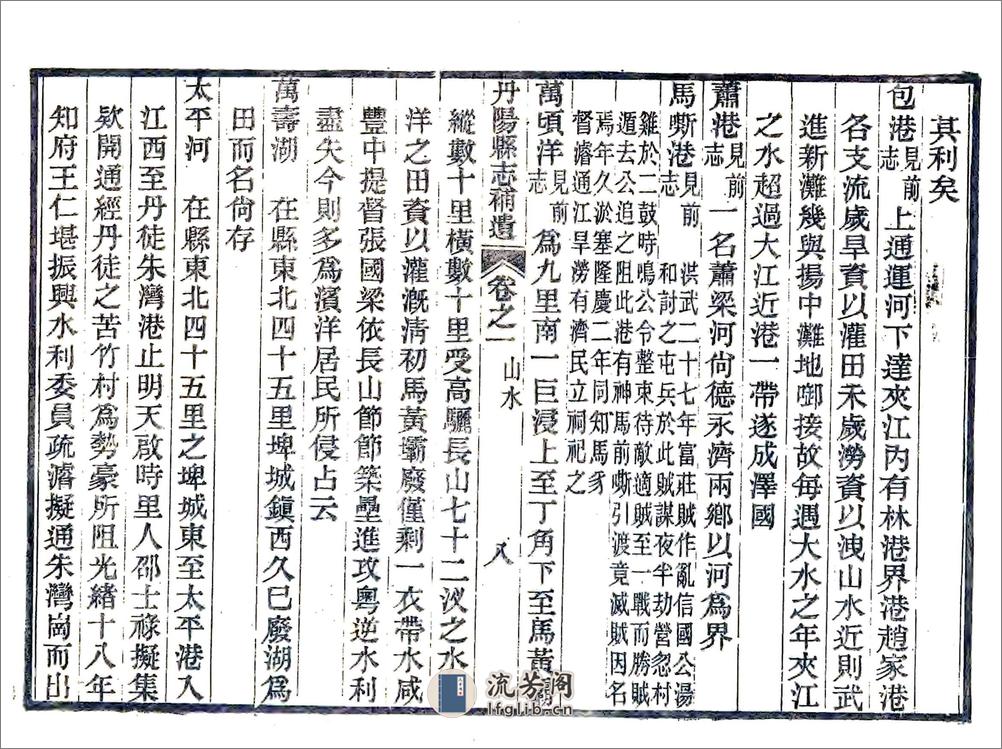 其利矣
包港見前志上通運河下達夾江內有林港界港趙家港
各支流歲旱資以灌田禾歲澇資以洩山水近則武
進新灘幾與揚中灘地啣接故每遇大水之年夾江
之水超過大江近港一帶遂成澤國
蕭港見前志一名蕭梁河尙德永濟兩鄉以河爲界
馬嘶港見前志
洪武二十七年富莊賊作亂信國公湯
和討之屯兵於此賊謀夜半劫營忽村
雞於二鼓時鳴公令整束待敵適賊至一戰而勝賊
遁去公追之阻此港有神馬前嘶引渡竟滅賊因名
焉年久淤塞隆慶二年同知馬豸
督濬通江旱澇有濟民立祠祀之
萬頃洋見前志爲九里南一巨浸上至丁角下至馬黃
丹陽縣志補遺 卷之一 山水 八
縱數十里橫數十里受高驪長山七十二汊之水
洋之田資以灌漑淸初馬黃壩廢僅剩一衣帶水咸
豐中提督張國梁依長山節節築壘進攻粵逆水利
盡失今則多爲濱洋居民所侵占云
萬壽湖 在縣東北四十五里埤城鎭西久巳廢湖爲
田而名尙存
太平河 在縣東北四十五里之埤城東至太平港入
江西至丹徒朱灣港止明天啟時里人邵士祿擬集
欵開通經丹徒之苦竹村爲勢豪所阻光緒十八年
知府王仁堪振興水利委員疏濬擬通朱灣崗而出
流芳阁
lfglib.cn